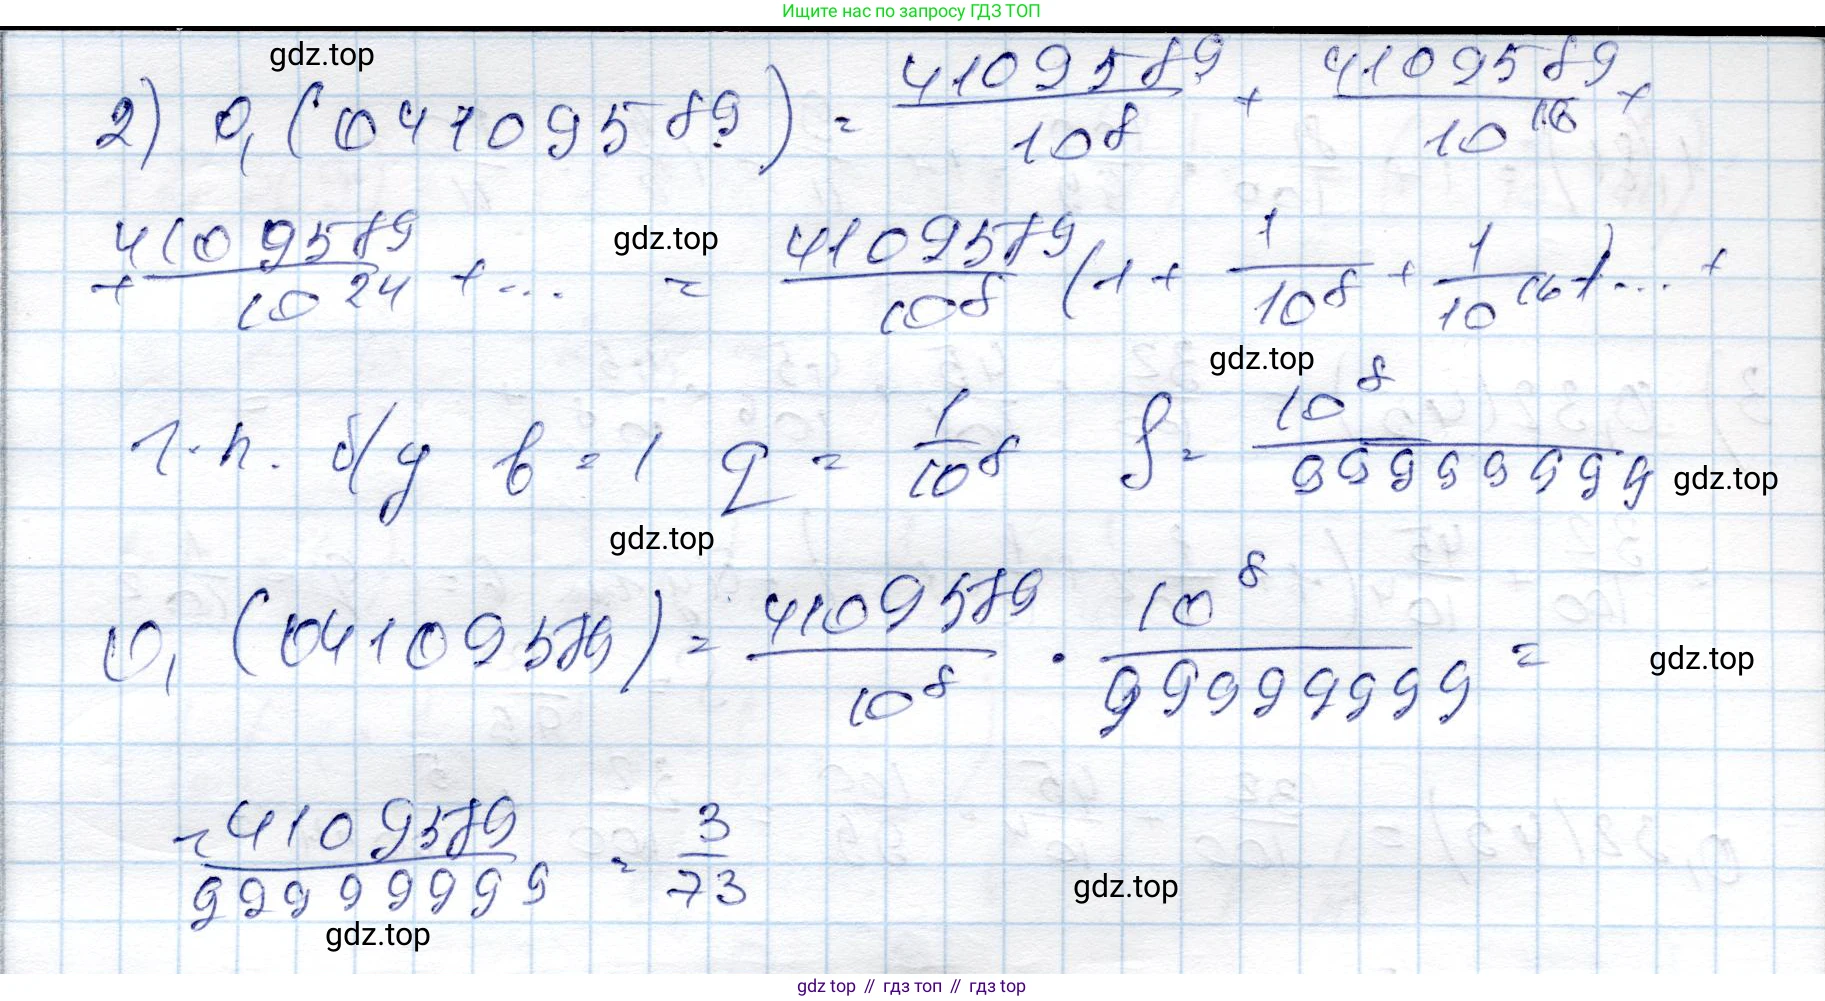 Ищите нас по запросу ГДЗ ТОП
gdz.top
2) 0,(04109589) = 4109589/10^8 + 4109589/10^16 +
+ 4109589/10^24 + ... = 4109589/10^8 (1 + 1/10^8 + 1/10^16 + )... +
gdz.top
gdz.top
г.п. б/у b = 1 q = 1/10^8 S = 10^8/99999999
gdz.top
gdz.top
0,(04109589) = 4109589/10^8 · 10^8/99999999 =
gdz.top
= 4109589/99999999 = 3/73
gdz.top
gdz.top
gdz top // гдз топ // гдз top